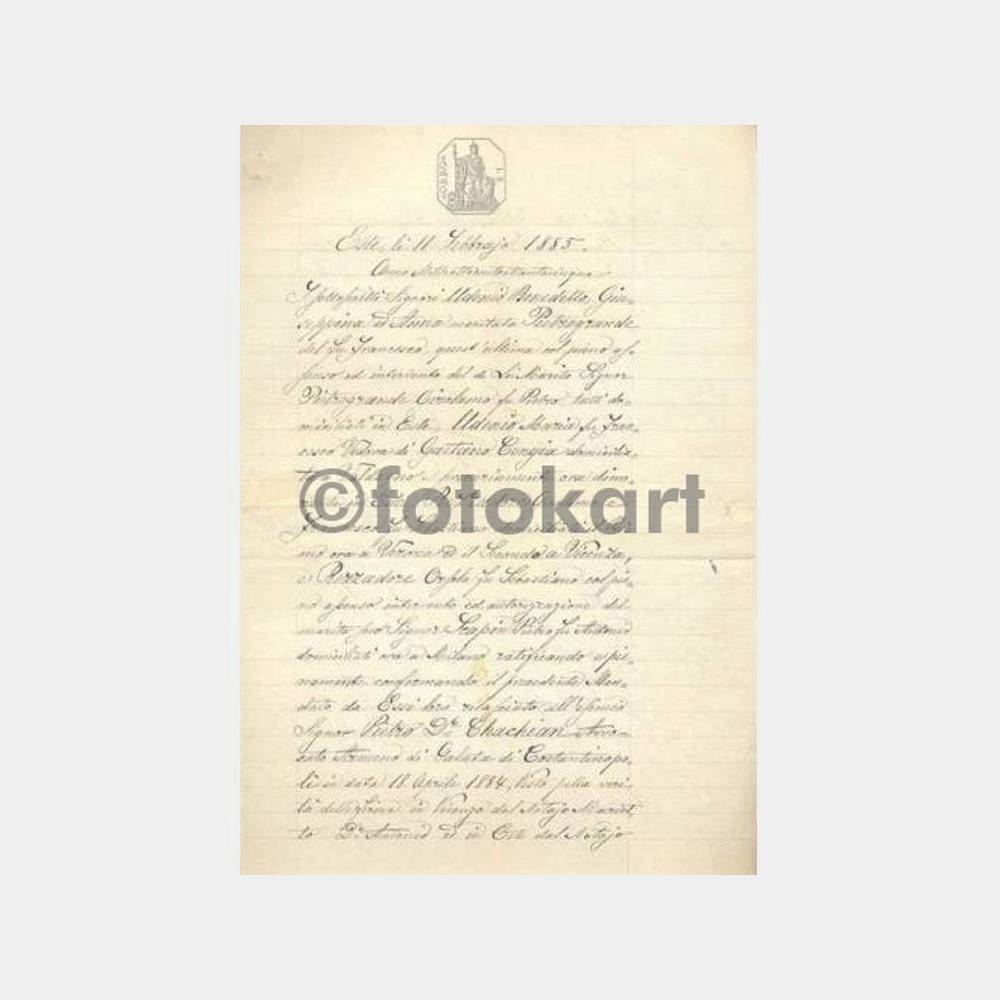 Este, li 11 Febbrajo 1885.
Anno Milleottocentottantacinque
I sottoscritti Signori Udenio Benedetto, Giu-
seppina ed Anna maritata Pietrogrande
del fu Francesco, quest'ultima col pieno as-
senso ed intervento del di Lei Marito Signor
Pietrogrande Girolamo fu Pietro tutti do-
miciliati in Este, Udenio Maria fu Fran-
cesco Vedova di Gaetano domicilia-
ta ora dimo-
©fotokart
Francesco fu
ora a Verona ed il Secondo a Vicenza,
e Rezzadore Orsola fu Sebastiano col pie-
no assenso intervento ed autorizzazione del
marito suo Signor Scapin Pietro fu Antonio
domiciliati ora a Milano ratificando e pie-
namente confermando il precedente Man-
dato da Essi loro rilasciato all'
Signor Pietro Dr. Chachian Avvo-
cato Armeno di Galata di Costantinopo-
li in data 18 Aprile 1884, Visto pella veri-
tà delle firme in Vicenza dal Notajo
Dr. Antonio ed in Este dal Notajo